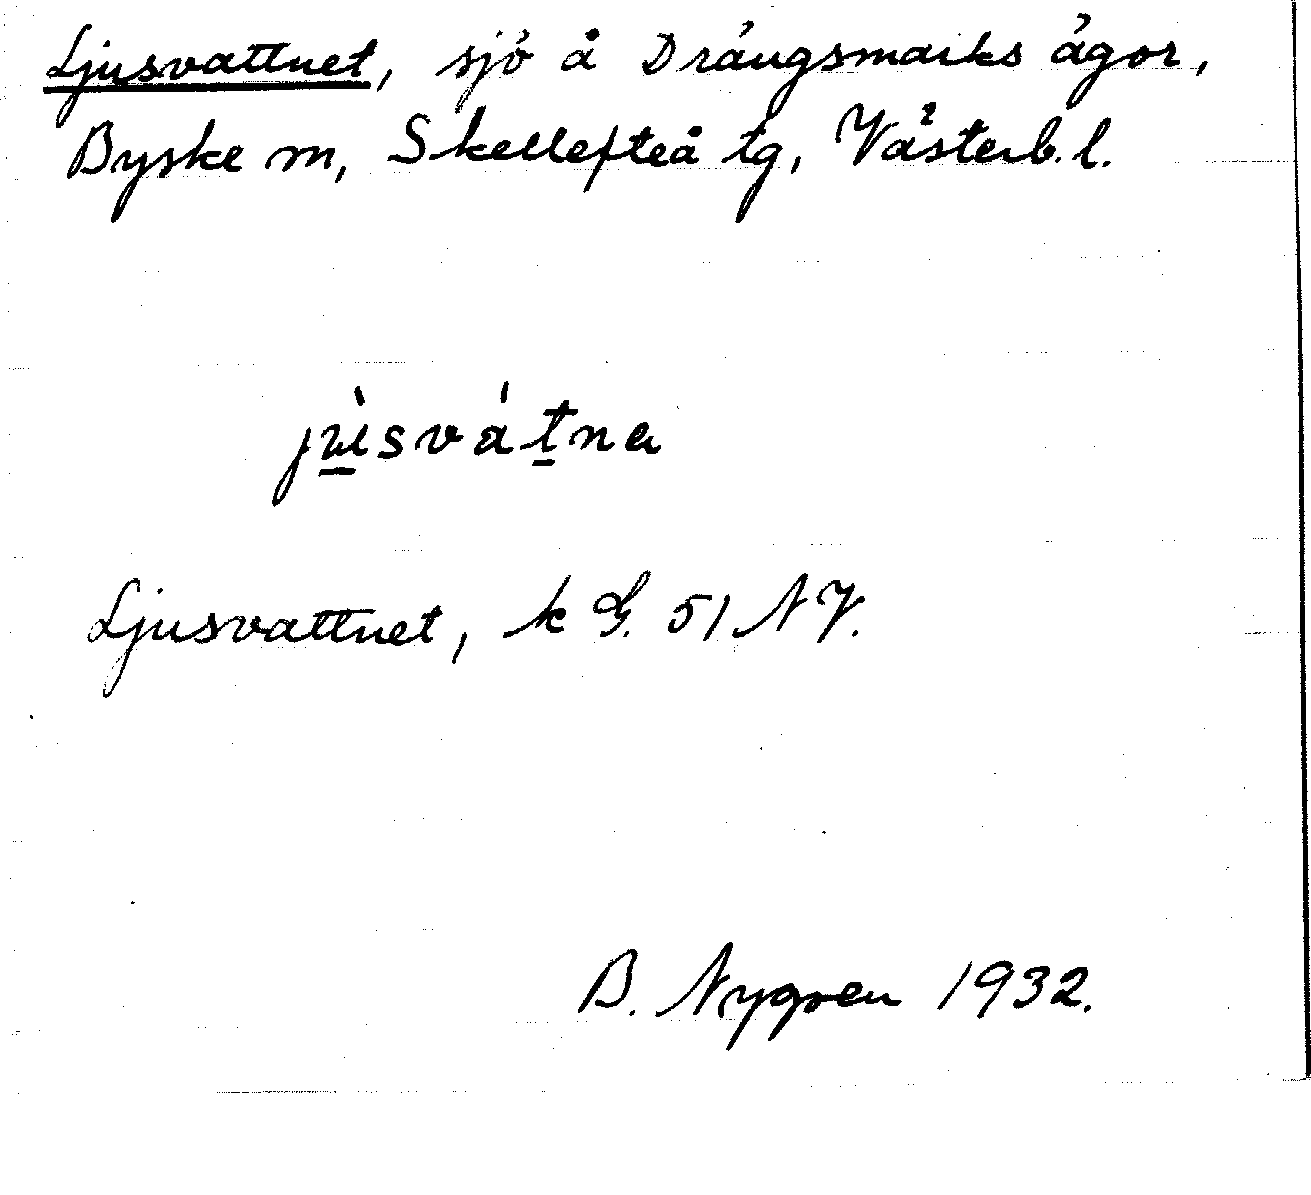 Ljusvattnet, sjö å Drängsmarks ägor,
Byske sn, Skellefteå tg, Västerb. l.
jùsvátna
Ljusvattnet, k G. 51 NV.
B. Nygren 1932.